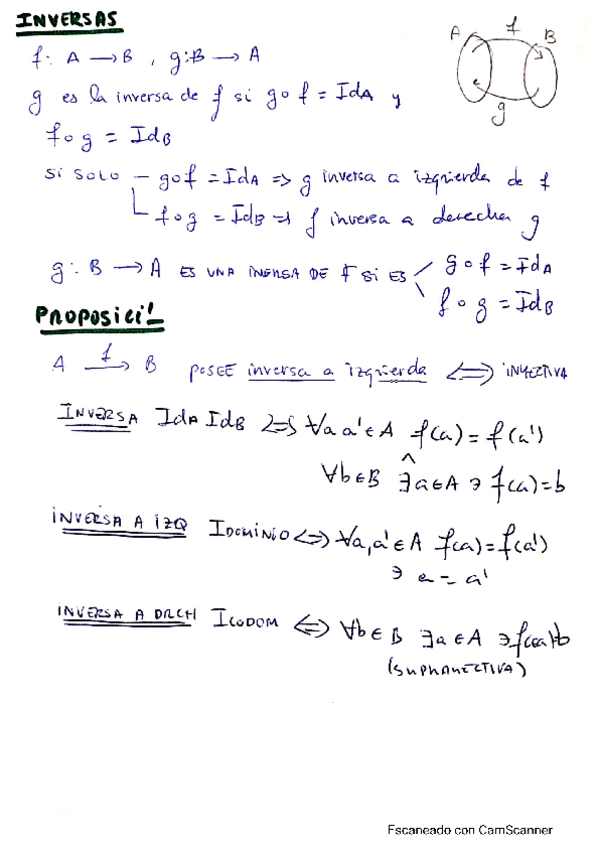 INVERSAS
f: A → B, g: B → A
g es la inversa de f si g∘f = IdA y
f∘g = IdB
A f B
g
Si solo – g∘f = IdA => g inversa a izquierda de f
f∘g = IdB => f inversa a derecha g
g: B → A ES UNA INVERSA DE f SI ES g∘f = IdA
f∘g = IdB
PROPOSICI!
A f→ B POSEE inversa a izquierda <=> INYECTIVA
INVERSA IdA IdB <=> ∀a a' ∈ A f(a) = f(a')
∧
∀b ∈ B ∃a ∈ A ∋ f(a) = b
INVERSA A IZQ IDOMINIO <=> ∀a, a' ∈ A f(a) = f(a')
∋ a = a'
INVERSA A DRCH ICODOM <=> ∀b ∈ B ∃a ∈ A ∋ f(a) = b
(SUPRAYECTIVA)
Escaneado con CamScanner